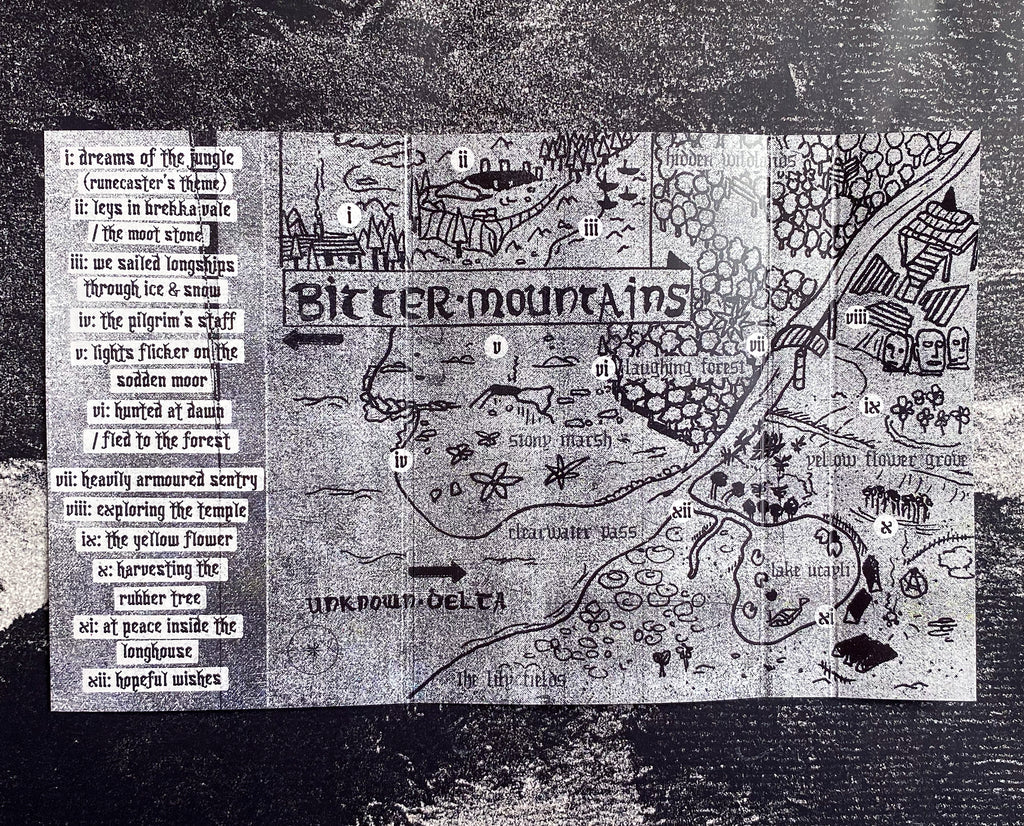 i: dreams of the jungle
(runecaster's theme)
ii: leys in brekka vale
/ the moot stone
iii: we sailed longships
through ice & snow
iv: the pilgrim's staff
v: lights flicker on the
sodden moor
vi: hunted at dawn
/ fled to the forest
vii: heavily armoured sentry
viii: exploring the temple
ix: the yellow flower
x: harvesting the
rubber tree
xi: at peace inside the
longhouse
xii: hopeful wishes
i
ii
iii
hidden wildlands
BITTER·MOUNTAINS
v
vi
laughing forest
vii
viii
ix
iv
stony marsh
yellow flower grove
xii
x
clearwater pass
lake ucayli
UNKNOWN·DELTA
xi
the lily fields